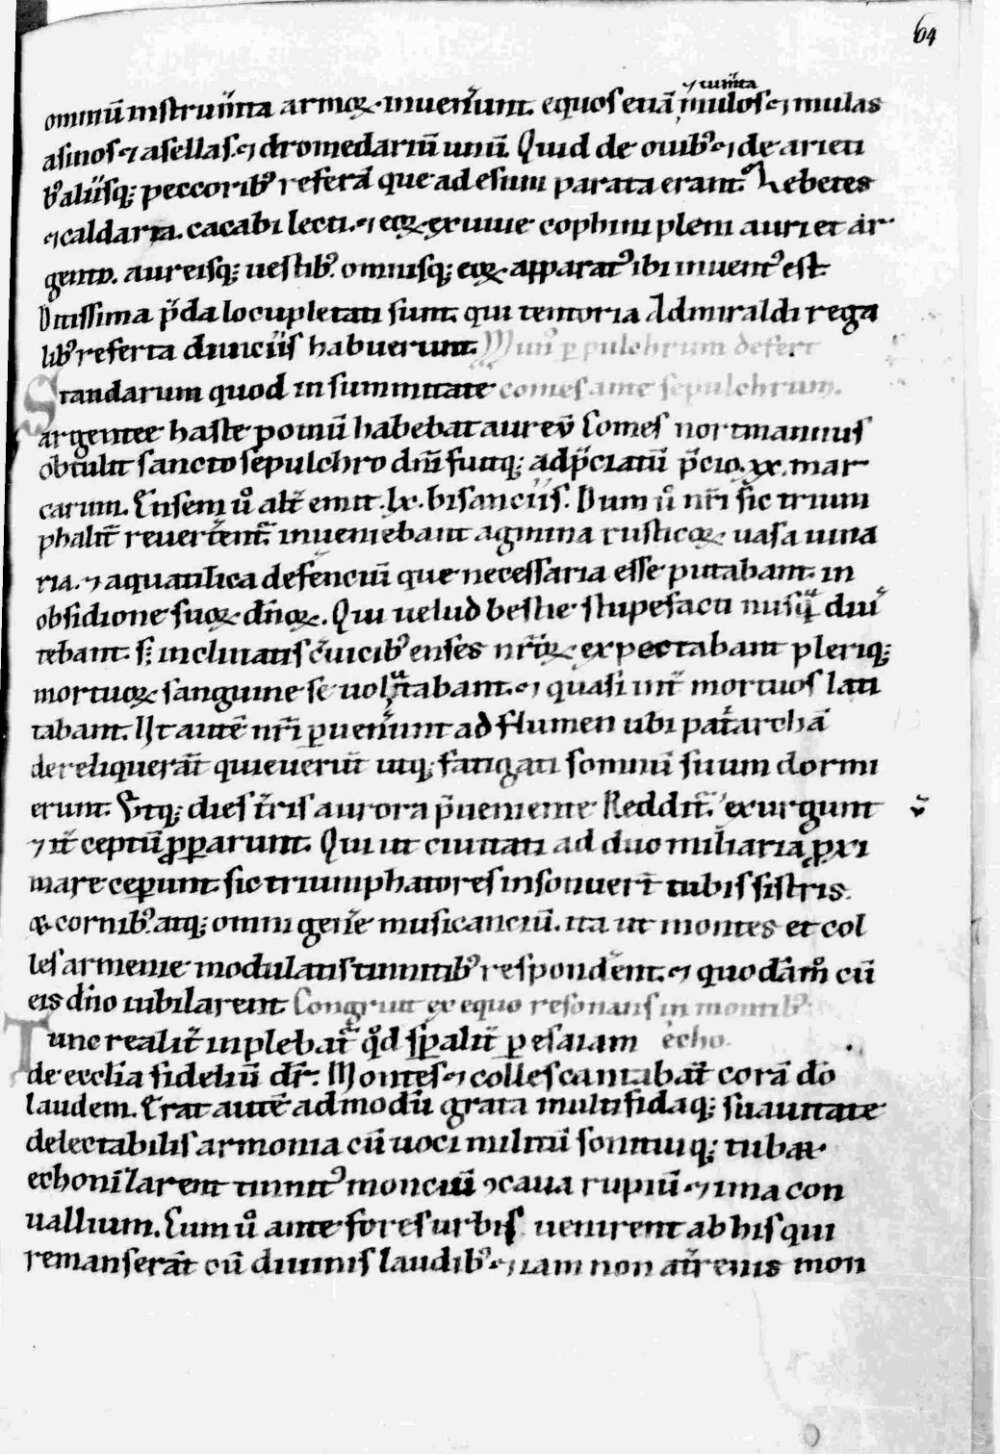 64
⁊ iumta
ommū instrum̄ta armoꝝ. inuener̄unt. equos etiā mulos ⁊ mulas
asinos ⁊ asellas. ⁊ dromedariū unū. Quid de ouibꝰ ⁊ de arieti
bꝰ aliisq; peccoribꝰ referā que ad esum parata erant. Lebetes
⁊ caldaria. cacabi lecti. ⁊ eoꝝ exuuie cophini pleni auri et ar
gento. aureisq; uestibꝰ. omnisq; eoꝝ apparatꝰ ibi inuentꝰ est.
Ditissima p̄da locupletati sunt. qui tentoria Admiraldi rega
libꝰ referta diuiciis habuerunt. Munꝰ ꝑ pulchrum defert
Standarum quod in summitate comes ante sepulchrum.
argentee haste pomū habebat aureū Comes nortmannus
obtulit sancto sepulchro dn̄i fuitq; adp̄ciatū p̄cio. xx. mar
carum. Ensem ů alt̄ emit. lx. bisanciis. Dum ů nr̄i sic trium
phalit̄ reuertent̄. inueniebant agmina rusticoꝝ uasa uina
ria. ⁊ aquatilica deferenciū que necessaria esse putabant. in
obsidione suoꝝ dn̄oꝝ. Qui uelud bestie stupefacti nusq̄ diu̾
tebant. s; inclinatis c̄uicibꝰ enses nr̄oꝝ expectabant pleriq;
mortuoꝝ sanguine se uolutabant. ⁊ quasi int̄ mortuos lati
tabant. Ut autē nr̄i ꝑuener̄unt ad flumen ubi pat̄archā
dereliquerāt quieuer̄t utq; fatigati somnū suum dormi
erunt. Vtq; dies t̄ris aurora p̄ueniente Reddit̄. exurgunt
⁊ it̄ ceptū ꝓꝑarunt. Qui ut ciuitati ad duo miliaria ꝓxi
mare ceperunt. sic triumphatores insonuer̄t tubis sistris.
& cornibꝰ. atq; omni gen̄e musicanciū. ita ut montes et col
les armenie modulatis tinnitibꝰ respondēent. ⁊ quodām̊ cū
eis dn̄o iubilarent. Congruit ex equo resonans in montibꝰ
Tunc realit̄ inplebat̄ qd̊ sp̄alit̄ ꝑ esaiam echo.
de ecclīa fideliū dr̄. Montes ⁊ colles cantabāt corā dō
laudem. Erat autē admodū grata multifidaq; suauitate
delectabilis armonia cū uoci militū sonituiq; tubaꝝ
echonizarent tinnitꝰ monciū ꝯcaua rupiū ⁊ ima con
uallium. Cum ů ante fores urbis uenirent ab his qui
remanserāt cū diuinis laudibꝰ. ⁊ iam non at̄renis mon